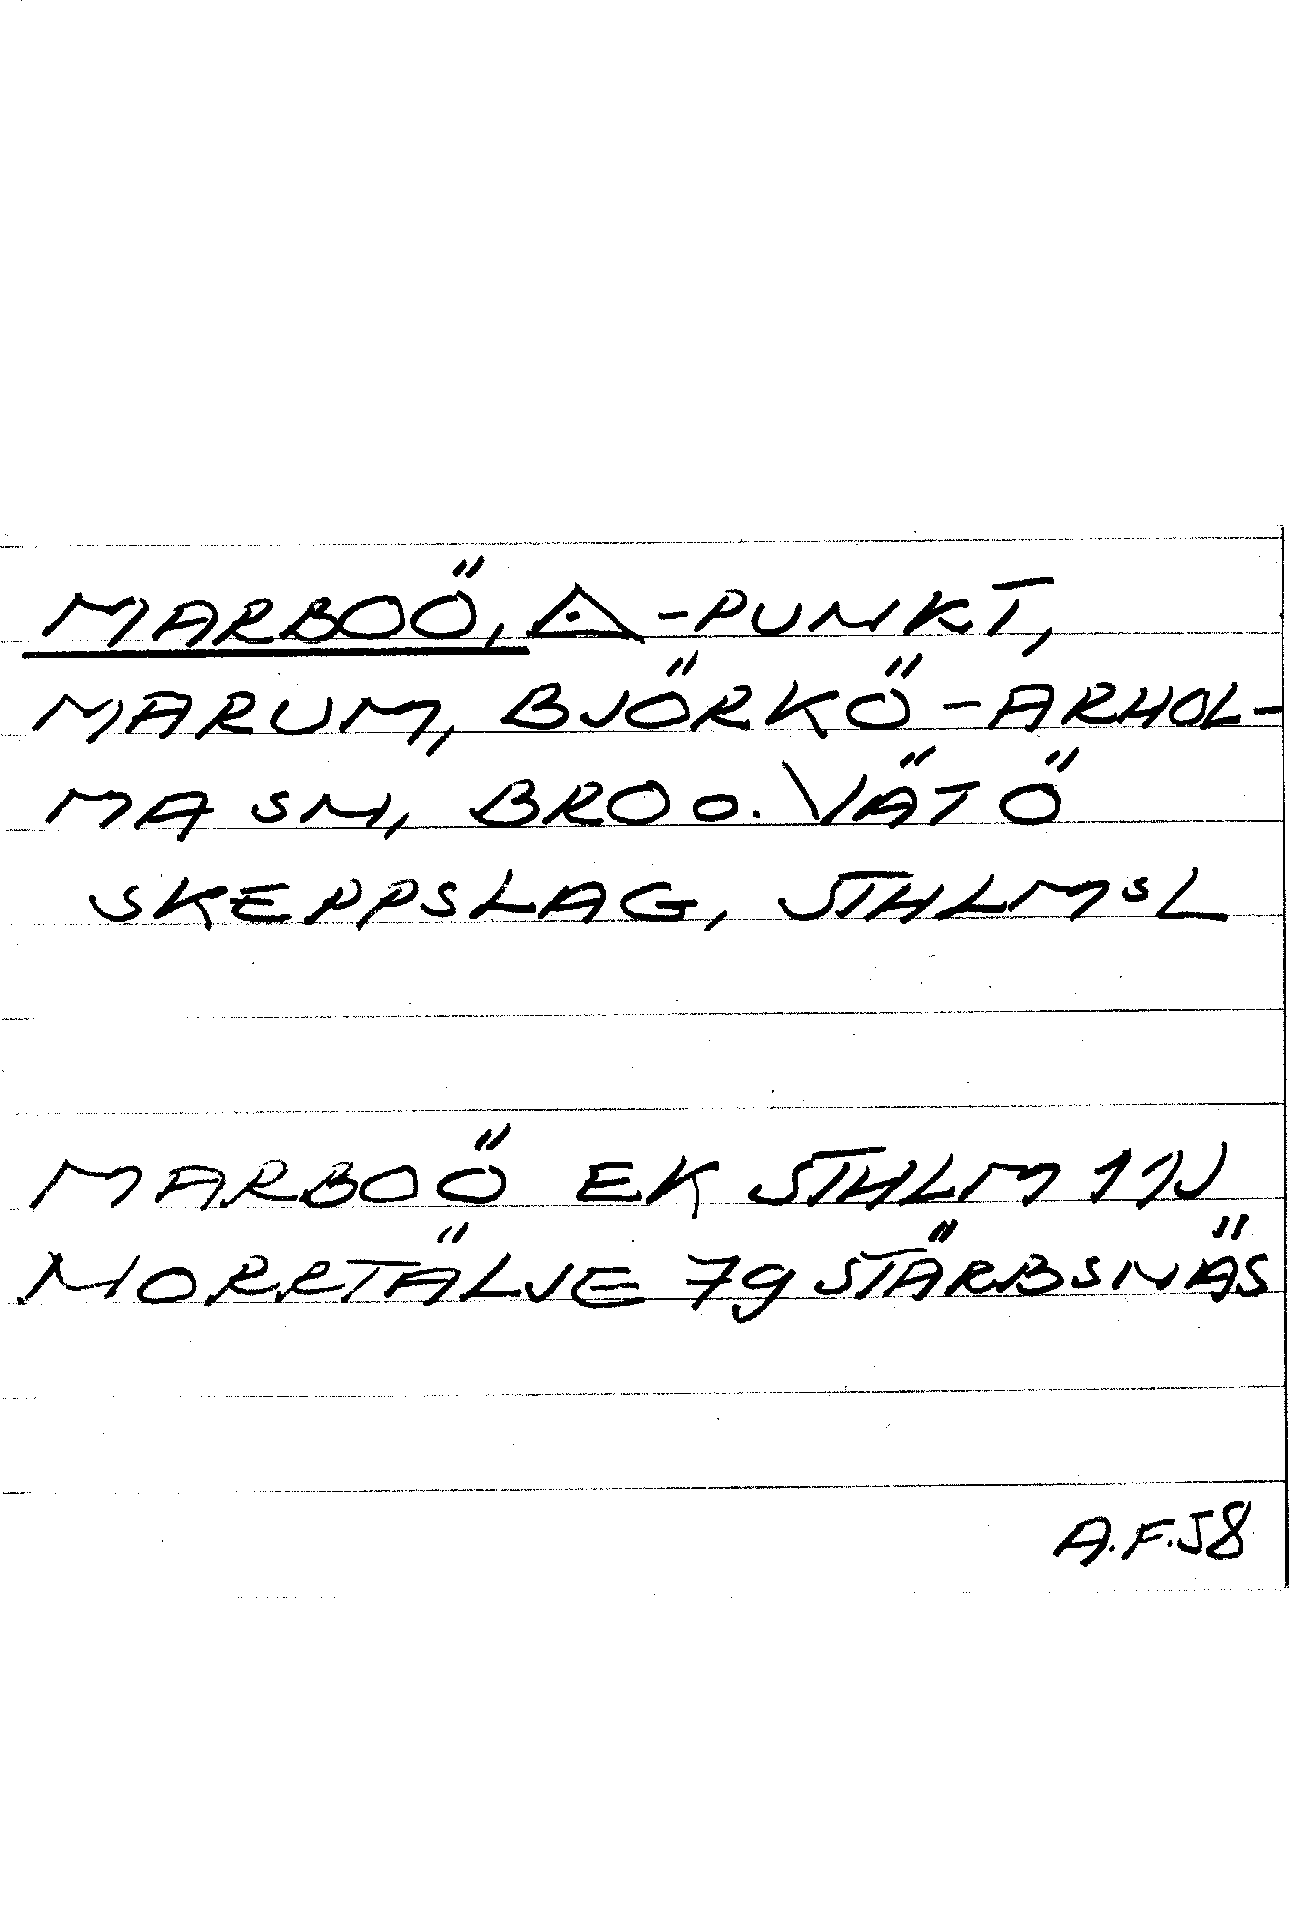 MARBOÖ, △-PUNKT,
MARUM, BJÖRKÖ-ARHOL-
MA SN, BRO o. VÄTÖ
SKEPPSLAG, STHLMSL
MARBOÖ EK STHLM 11J
NORRTÄLJE 79 STÄRBSNÄS
A.F.58